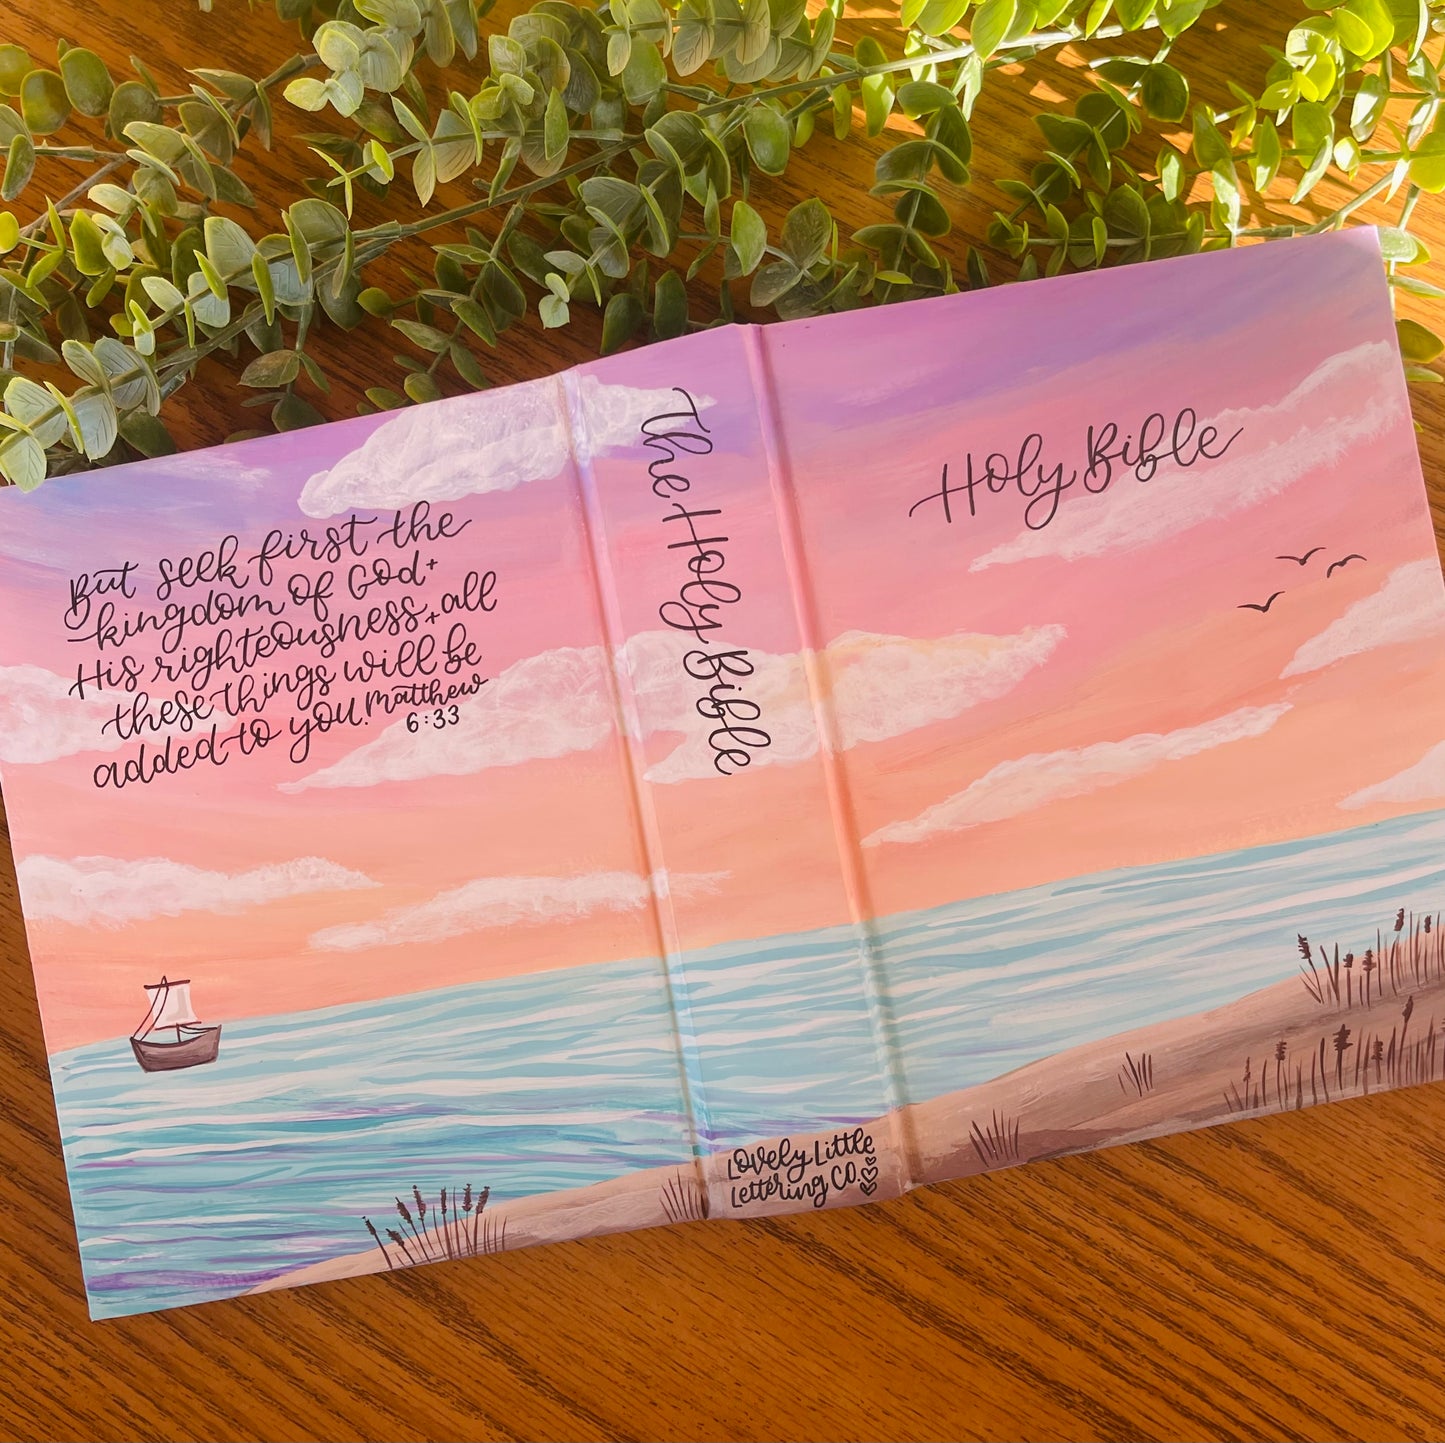 But seek first the
kingdom of God +
His righteousness, + all
these things will be
added to you. Matthew
6:33
The Holy Bible
Lovely Little
Lettering Co.
Holy Bible